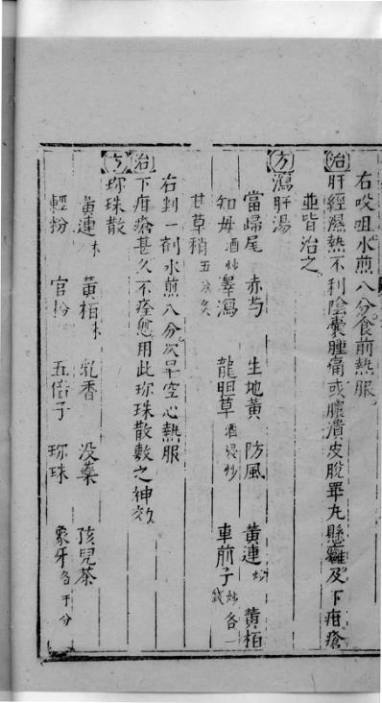 右㕮咀水煎八分食前熱服
治肝經濕熱不利陰囊腫痛或膿潰皮脫睪丸懸壅及下疳瘡
並皆治之
方瀉肝湯
當歸尾 赤芍 生地黃 防風 黃連炒 黃栢
知母酒炒 澤瀉 龍胆草酒浸炒 車前子炒各一錢
甘草稍五分炙
右剉一劑水煎八分次早空心熱服
治下疳瘡甚久不痊愈用此珎珠散敷之神效
方珎珠散
黃連末 黃栢末 乳香 没藥 孩兒茶
輕粉 官粉 五倍子 珎珠 象牙各